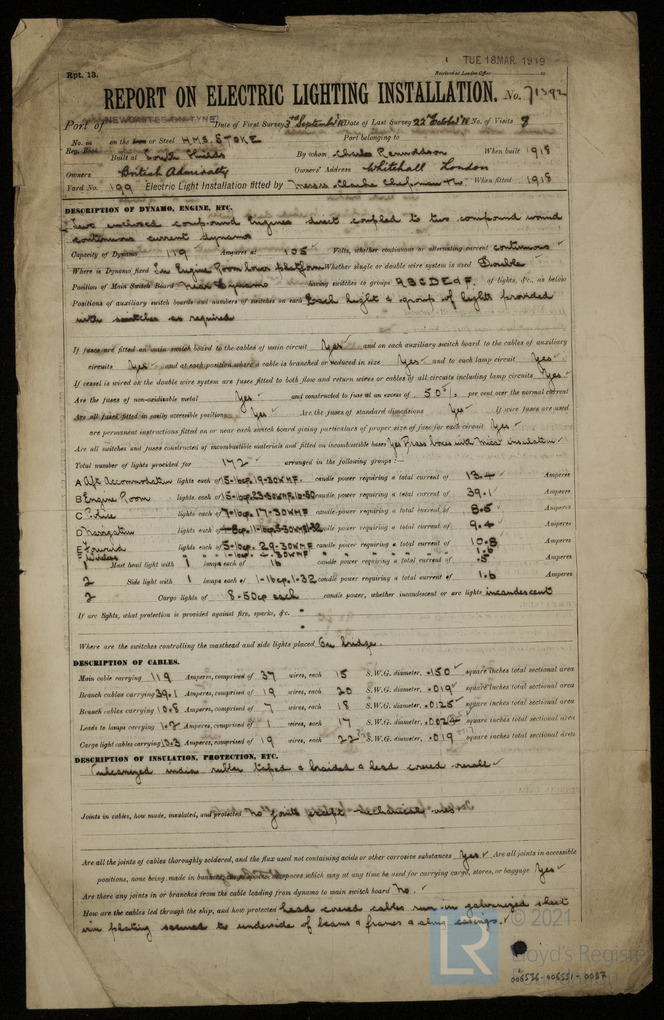 TUE 18 MAR. 1919
Rpt. 13.
Received at London Office
REPORT ON ELECTRIC LIGHTING INSTALLATION. No. 71392
Port of NEWCASTLE-ON-TYNE Date of First Survey 3rd September 18 Date of Last Survey 22nd October 18 No. of Visits 9
No. in on the Iron or Steel H.M.S. STOKE Port belonging to
Reg. Book Built at South Shields By whom Charles Rennoldson When built 1918
Owners British Admiralty Owners' Address Whitehall London
Yard No. 199 Electric Light Installation fitted by Messrs Clarke Chapman & Co When fitted 1918
DESCRIPTION OF DYNAMO, ENGINE, ETC.
Two enclosed compound Engines direct coupled to two compound wound
continuous current dynamo
Capacity of Dynamo 119 Amperes at 105 Volts, whether continuous or alternating current continuous
Where is Dynamo fixed In Engine Room lower platform Whether single or double wire system is used Double
Position of Main Switch Board near Dynamo having switches to groups A B C D E & F of lights, &c., as below
Positions of auxiliary switch boards and numbers of switches on each Each light & group of lights provided
with switches as required
If fuses are fitted on main switch board to the cables of main circuit Yes and on each auxiliary switch board to the cables of auxiliary
circuits Yes and at each position where a cable is branched or reduced in size Yes and to each lamp circuit Yes
If vessel is wired on the double wire system are fuses fitted to both flow and return wires or cables of all circuits including lamp circuits Yes
Are the fuses of non-oxidizable metal Yes and constructed to fuse at an excess of 50% per cent over the normal current
Are all fuses fitted in easily accessible positions Yes Are the fuses of standard dimensions Yes If wire fuses are used
are permanent instructions fitted on or near each switch board giving particulars of proper size of fuse for each circuit Yes
Are all switches and fuses constructed of incombustible materials and fitted on incombustible bases Yes Brass boxes with mica insulation
Total number of lights provided for 172 arranged in the following groups :—
A Aft Accommodation lights each of 5-16cp. 19-30W.M.F. candle power requiring a total current of 13.4 Amperes
B Engine Room lights each of 15-16cp. 23-30W.M.F. 16-50 candle power requiring a total current of 39.1 Amperes
C Police lights each of 7-16cp. 17-30W.M.F. candle power requiring a total current of 8.5 Amperes
D Navigation lights each of candle power requiring a total current of 9.4 Amperes
E Forward lights each of 5-16cp. 29-30W.M.F. candle power requiring a total current of 10.8 Amperes
F Wireless 1-16cp. 4-30W.M.F. 1.6
1 Mast head light with 1 lamps each of 16 candle power requiring a total current of .5 Amperes
2 Side light with 1 lamps each of 1-16cp. 1-32 candle power requiring a total current of 1.6 Amperes
2 Cargo lights of 8-50cp each candle power, whether incandescent or arc lights incandescent
If arc lights, what protection is provided against fire, sparks, &c.
Where are the switches controlling the masthead and side lights placed On bridge.
DESCRIPTION OF CABLES.
Main cable carrying 119 Amperes, comprised of 37 wires, each 15 S.W.G. diameter, .150 square inches total sectional area
Branch cables carrying 39.1 Amperes, comprised of 19 wires, each 20 S.W.G. diameter, .019 square inches total sectional area
Branch cables carrying 10.8 Amperes, comprised of 7 wires, each 18 S.W.G. diameter, .0125 square inches total sectional area
Leads to lamps carrying 1.2 Amperes, comprised of 1 wires, each 17 S.W.G. diameter, .0024 square inches total sectional area
Cargo light cables carrying 10.3 Amperes, comprised of 19 wires, each 22 S.W.G. diameter, .019 square inches total sectional area
DESCRIPTION OF INSULATION, PROTECTION, ETC.
Vulcanized india rubber taped & braided & lead covered overall
Joints in cables, how made, insulated, and protected No joints except mechanical
Are all the joints of cables thoroughly soldered, and the flux used not containing acids or other corrosive substances Yes Are all joints in accessible
positions, none being made in bunkers, cargo spaces, or spaces which may at any time be used for carrying cargo, stores, or baggage Yes
Are there any joints in or branches from the cable leading from dynamo to main switch board No.
How are the cables led through the ship, and how protected Lead covered cables run in galvanized sheet
iron plating secured to underside of beams & frames & along casings.
LR © 2021
Lloyd's Register
006536-006551-0087